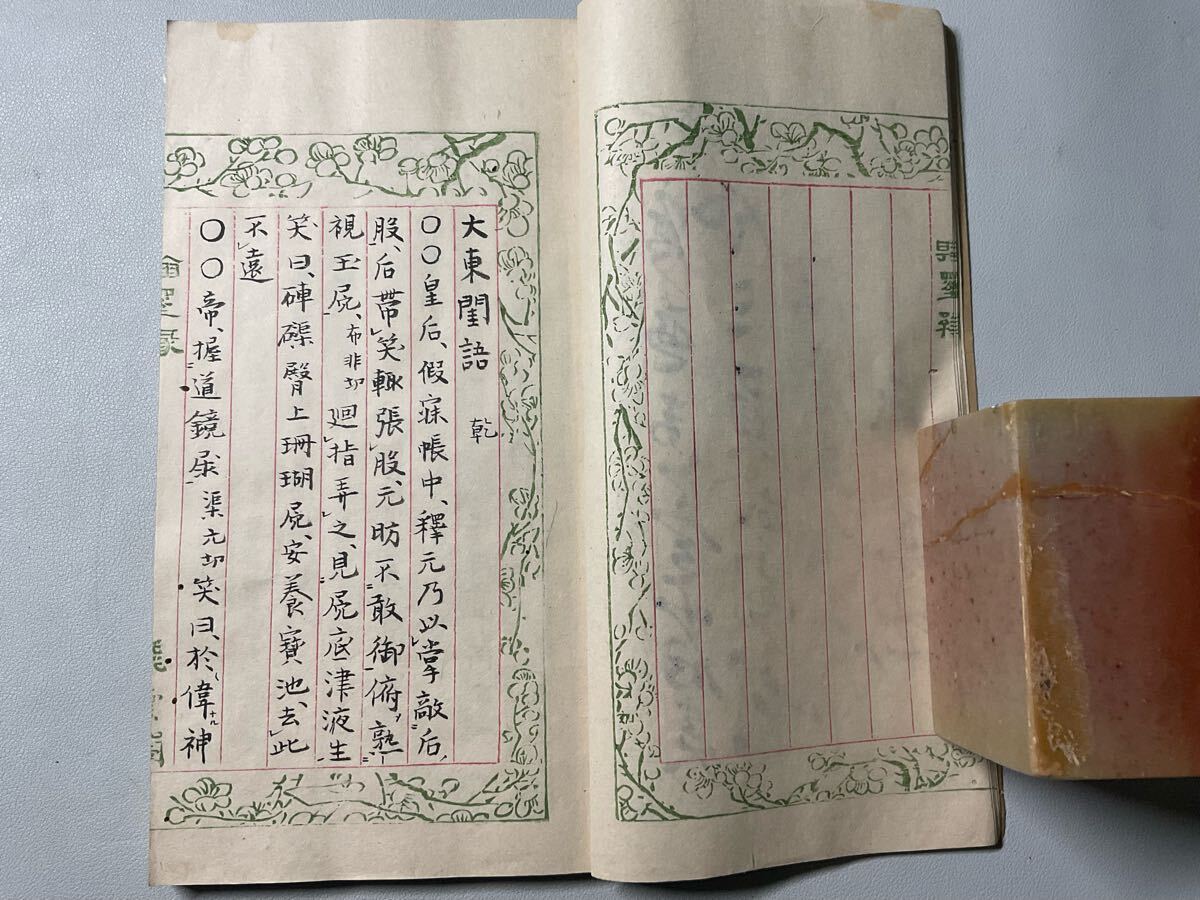 大東閨語 乾
〇〇皇后、假寐帳中、釋元乃以掌敲后
股、后帶笑輙張股、元昉不敢御俯熟
視玉𡱖、布非切 迴指弄之、見𡱖底津液生
笑曰、硨磲臀上珊瑚𡱖、安養寶池、去此
不遠
〇〇帝、握道鏡㞗 渠尤切 笑曰、於偉神